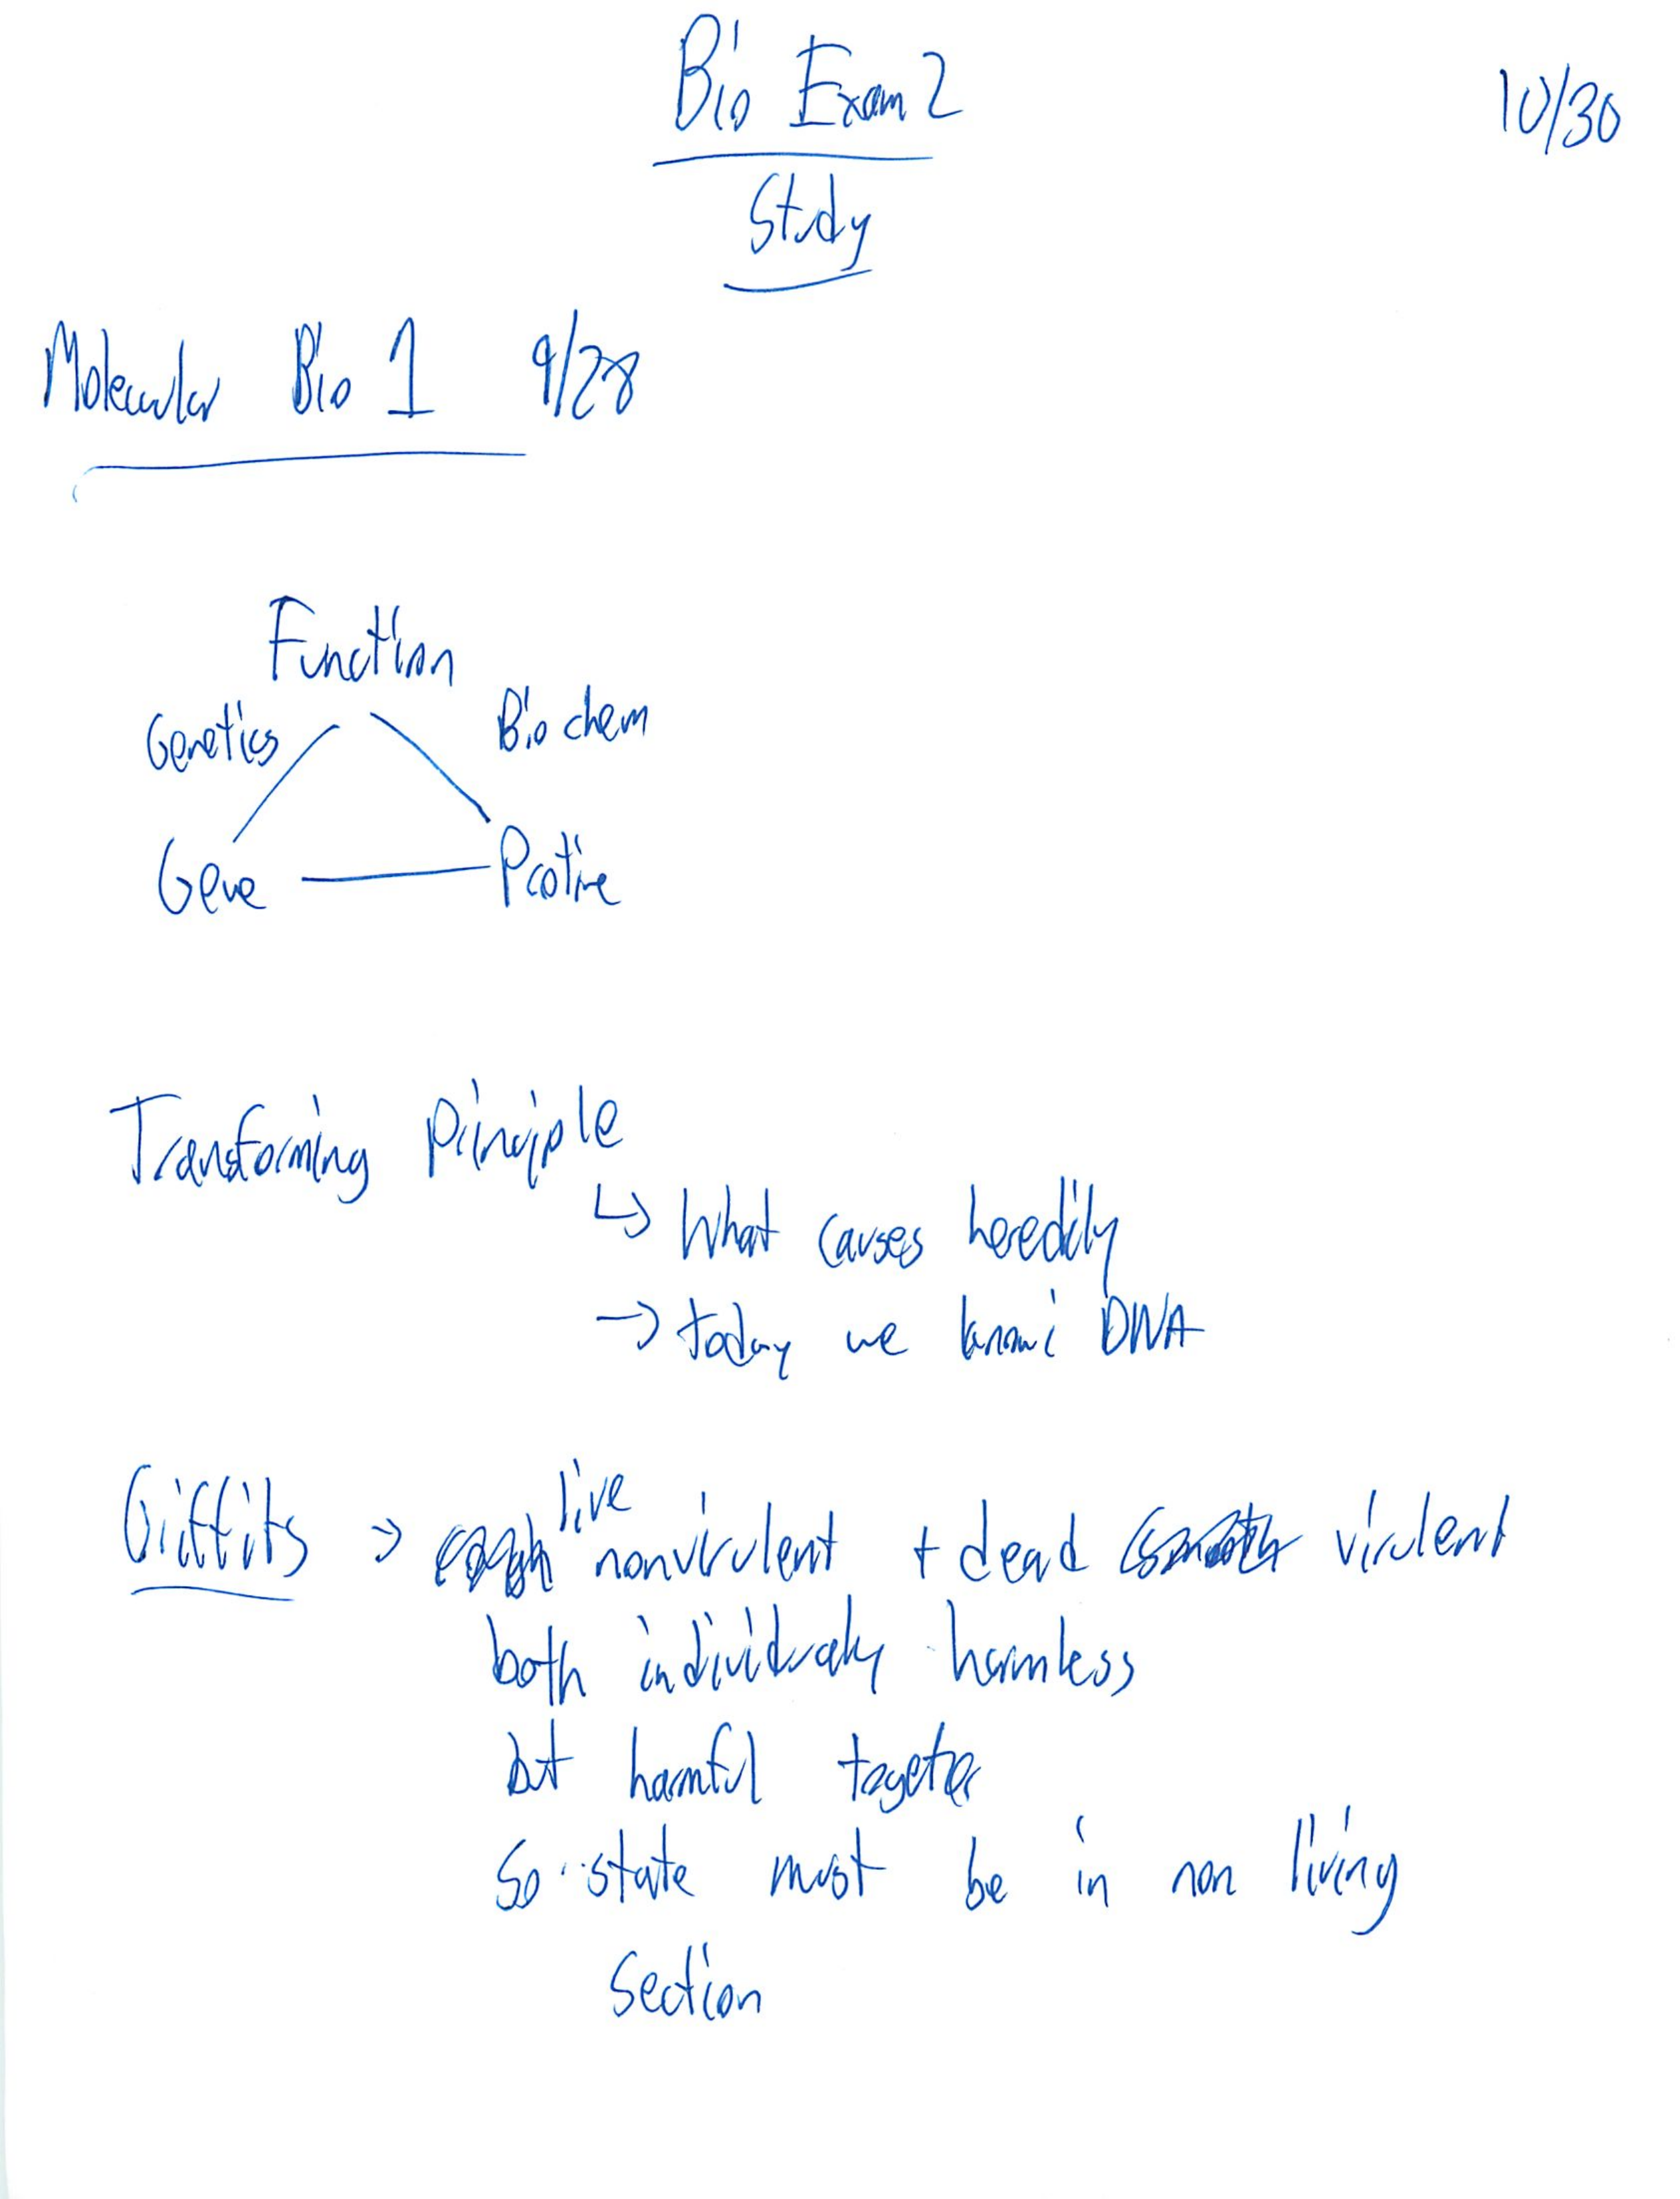 Bio Exam 2
10/30
Study
Molecular Bio 1 9/28
Function
Genetics
Bio chem
Gene
Protine
Transforming Principle
↳ What causes heredity
→ today we know: DNA
Griffits → rough live nonvirulent + dead smooth virulent
both individualy harmless
but harmful together
so state must be in non living
section